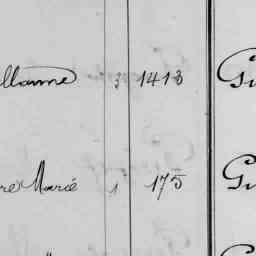 llaume 3 1413 Gu
re Marie 1 175 Gu